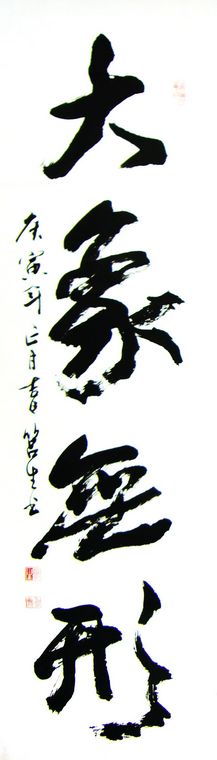 大象無形
庚寅年 月 書